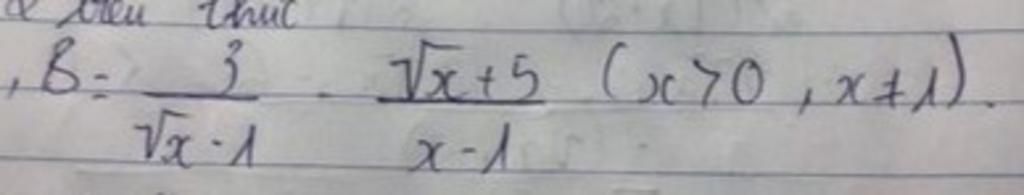 biểu thức
, B = \frac{3}{\sqrt{x} - 1} - \frac{\sqrt{x} + 5}{x - 1} (x > 0, x ≠ 1).